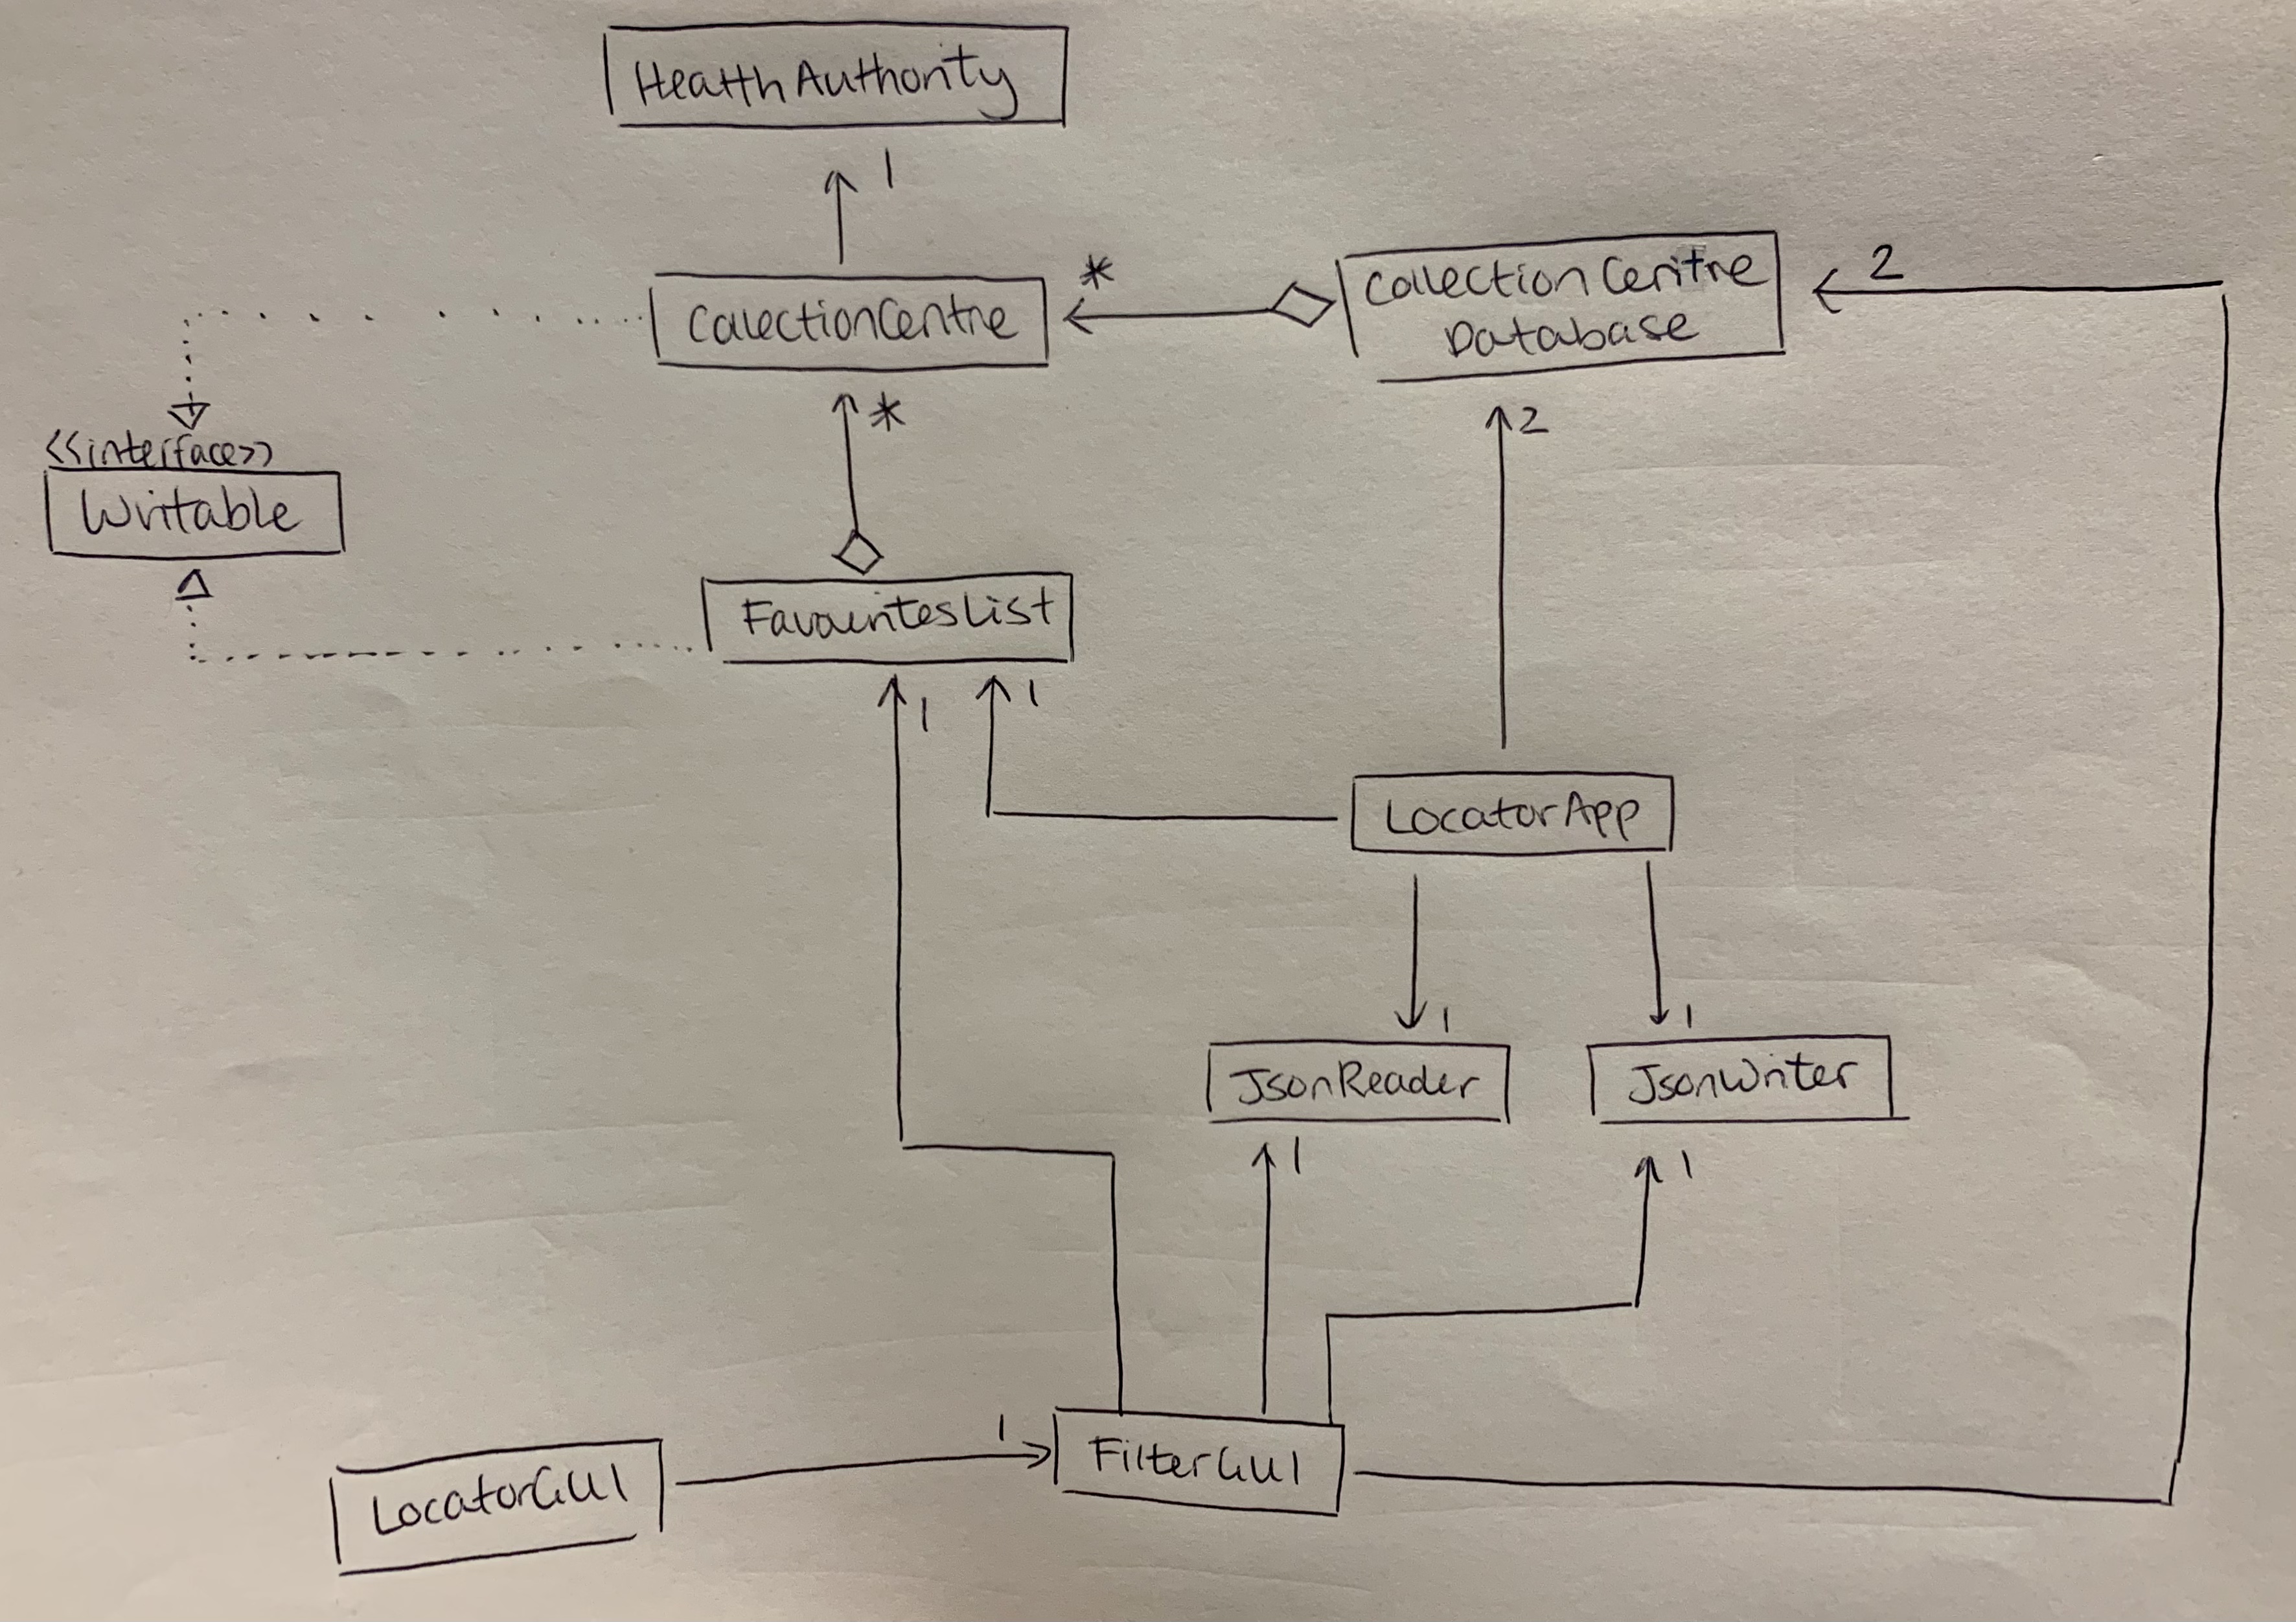 HealthAuthority
1
CollectionCentre
*
CollectionCentre
Database
2
*
2
<<interface>>
Writable
FavouritesList
1
1
LocatorApp
1
1
JsonReader
JsonWriter
1
1
1
FilterGUI
LocatorGUI